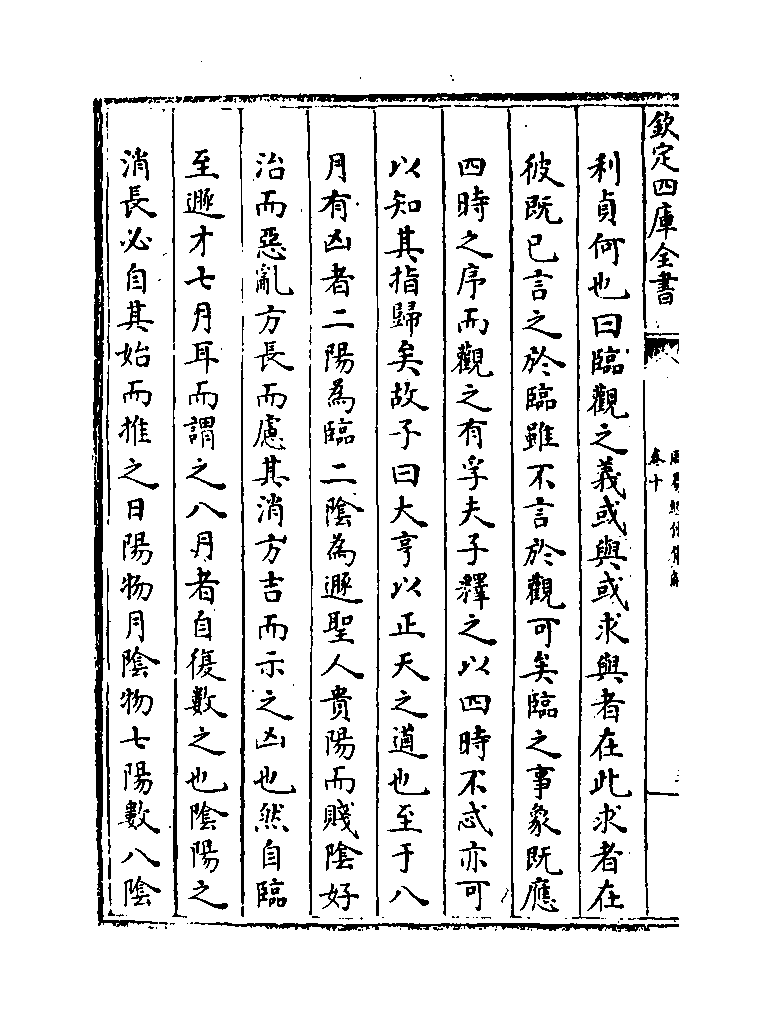 欽定四庫全書
卷十
利貞何也曰臨觀之義或與或求與者在此求者在
彼既已言之於臨雖不言於觀可矣臨之事象既應
四時之序而觀之有孚夫子釋之以四時不忒亦可
以知其指歸矣故子曰大亨以正天之道也至于八
月有凶者二陽為臨二陰為遯聖人貴陽而賤陰好
治而惡亂方長而慮其消方吉而示之凶也然自臨
至遯才七月耳而謂之八月者自復數之也陰陽之
消長必自其始而推之日陽物月陰物七陽數八陰